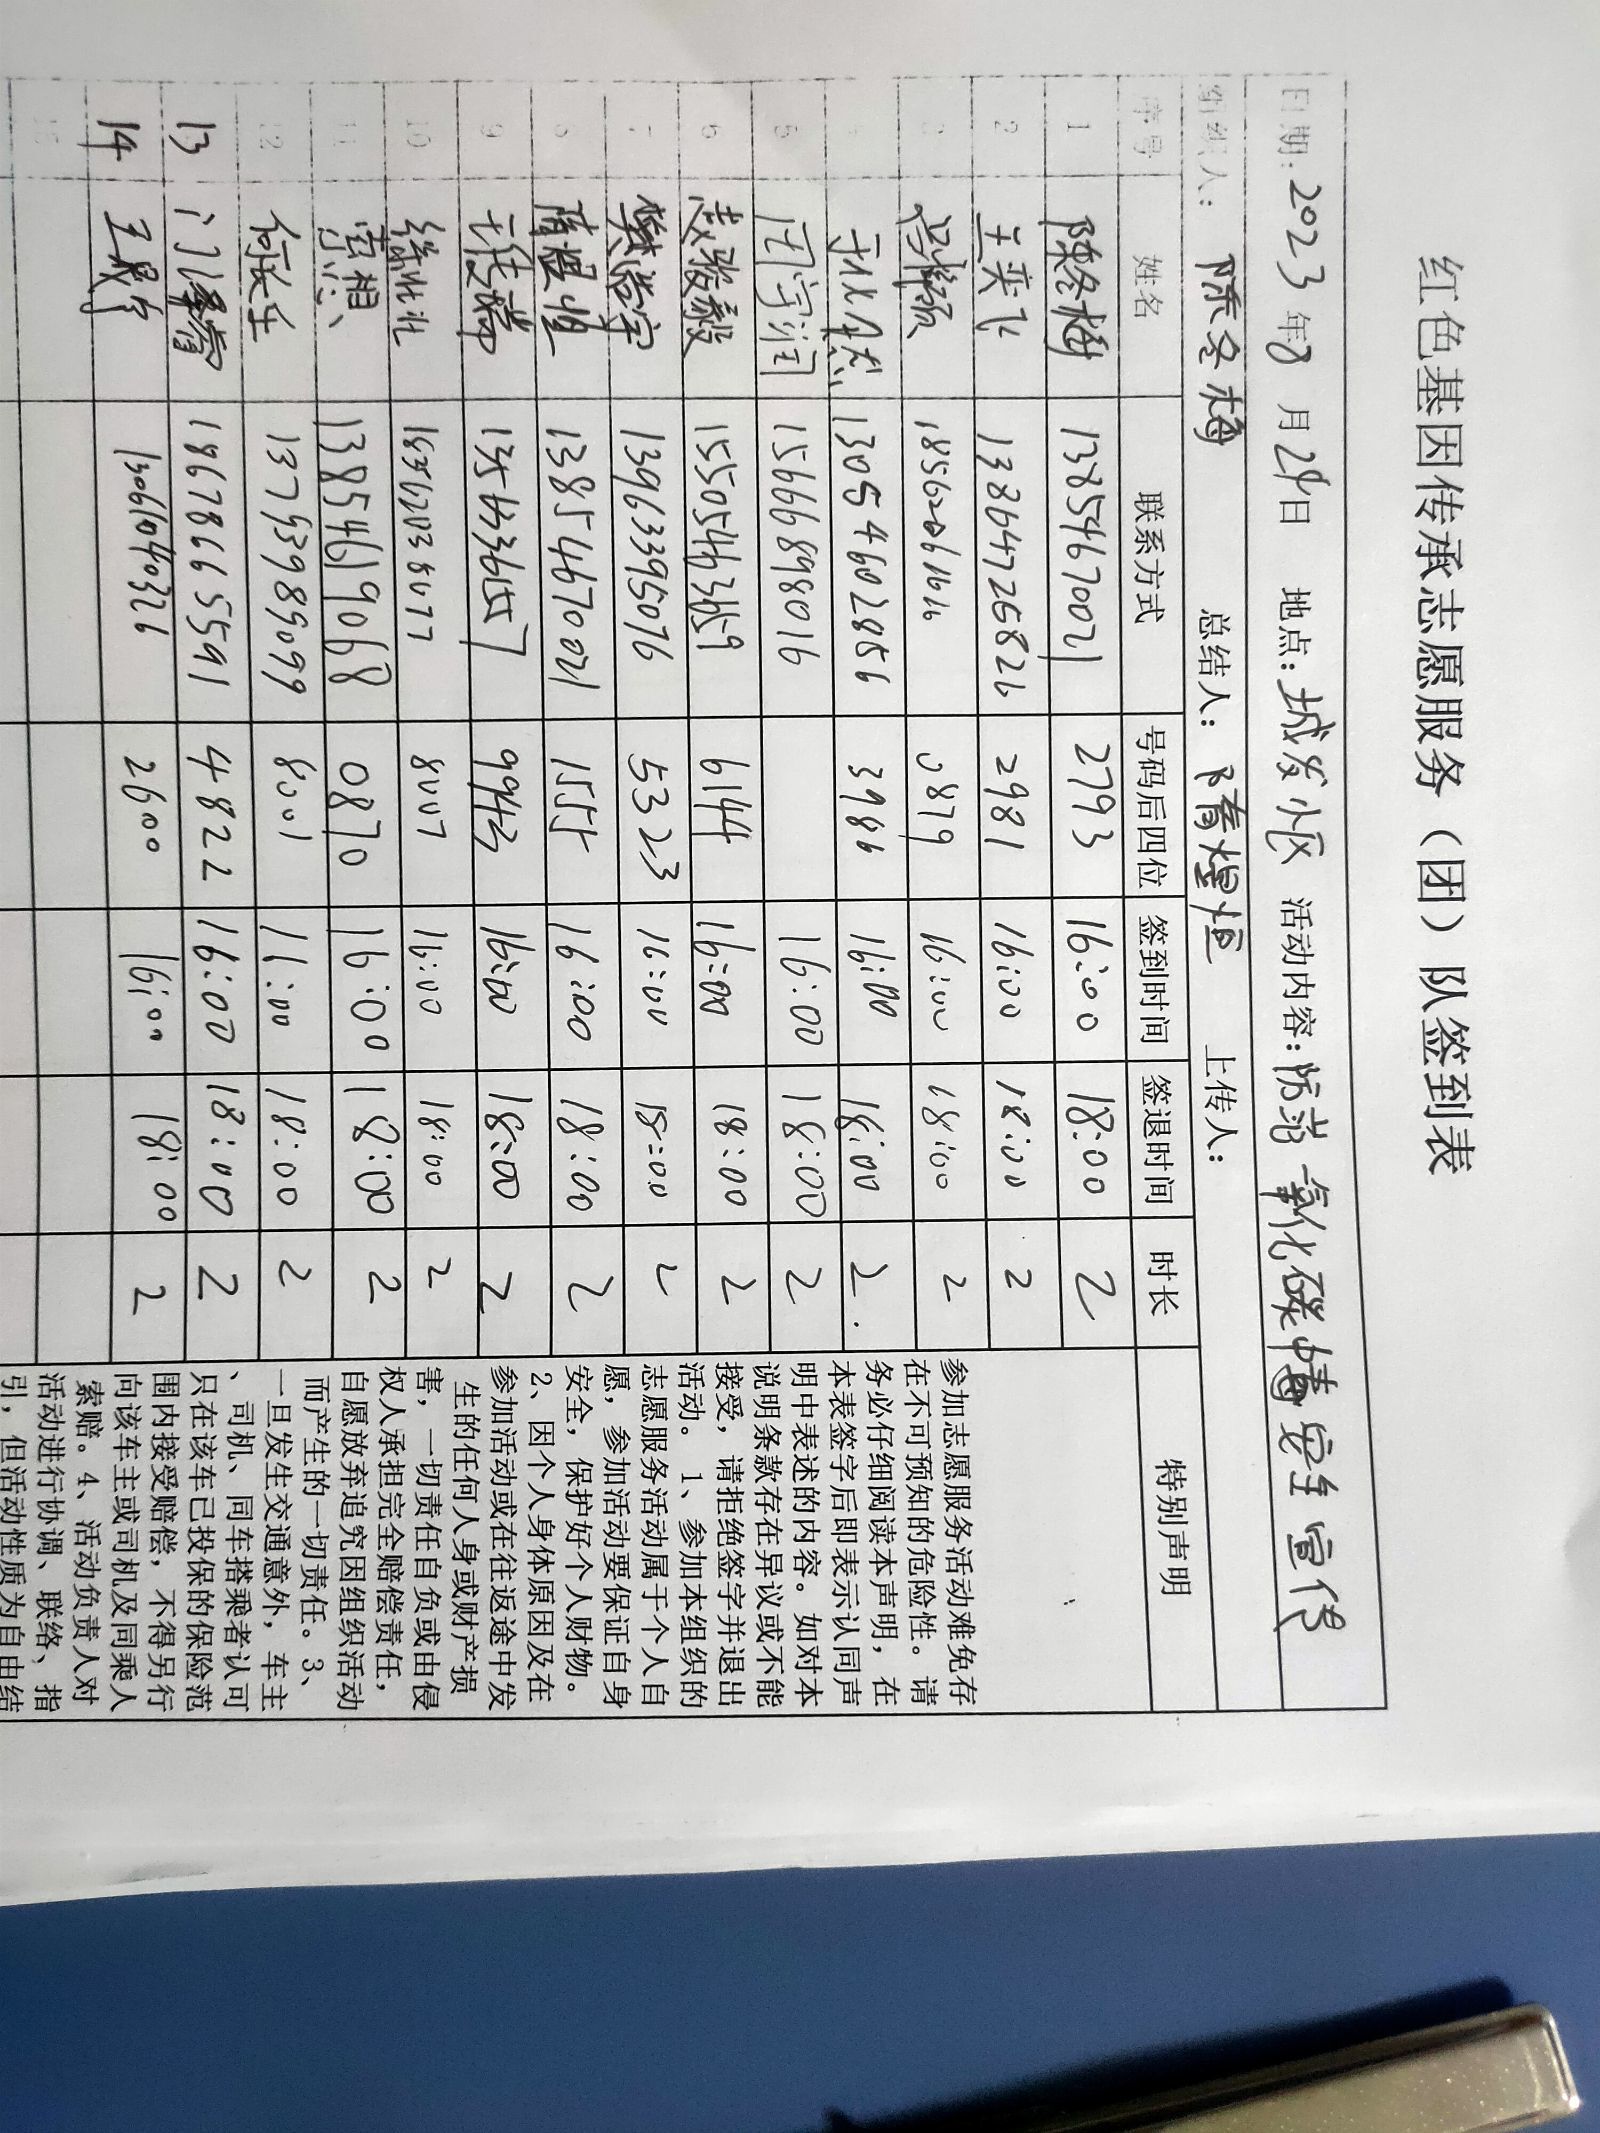 红色基因传承志愿服务（团）队签到表
日期：2023年8月29日 地点：城发小区 活动内容：防范一氧化碳中毒安全宣传
组织人：陈冬梅 总结人： 上传人：
序号 姓名 联系方式 号码后四位 签到时间 签退时间 时长 特别声明
1 陈冬梅 13854670021 2793 16:00 18:00 2
2 兰奕飞 13864725826 2981 16:00 18:00 2
3 0879 16:00 18:00 2
13054602856 3986 16:00 18:00 2
5 15666898016 16:00 18:00 2
6 15505463659 6144 16:00 18:00 2
7 樊浩宇 13963395076 5323 16:00 18:00 2
8 13854670021 1555 16:00 18:00 2
9 9943 16:00 18:00 2
10 16:00 18:00 2
11 13854619068 0870 16:00 18:00 2
12 13753989099 8001 18:00 2
13 18678665591 4822 16:00 18:00 2
14 王晨宇 2600 16:00 18:00 2
15
参加志愿服务活动难免存
在不可预知的危险性。请
务必仔细阅读本声明，在
本表签字后即表示认同声
明中表述的内容。如对本
说明条款存在异议或不能
接受，请拒绝签字并退出
活动。1、参加本组织的
志愿服务活动属于个人自
愿，参加活动要保证自身
安全，保护好个人财物。
2、因个人身体原因及在
参加活动或在往返途中发
生的任何人身或财产损
害，一切责任自负或由侵
权人承担完全赔偿责任，
自愿放弃追究因组织活动
而产生的一切责任。3、
一旦发生交通意外，车主
、司机、同车搭乘者认可
只在该车已投保的保险范
围内接受赔偿，不得另行
向该车主或司机及同乘人
索赔。4、活动负责人对
活动进行协调、联络、指
引，但活动性质为自由结